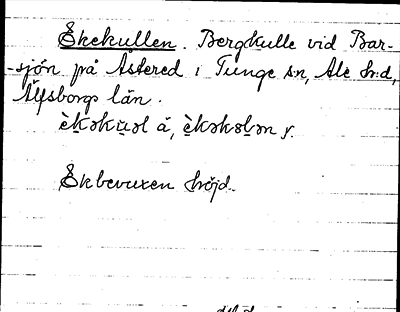 Ekekullen. Bergkulle vid Bar-
-sjön på Åstered i Tunge sn, Ale hrd,
Älfsborgs län.
èkəkùəl á, èkəkələn y.
Ekbevuxen höjd.